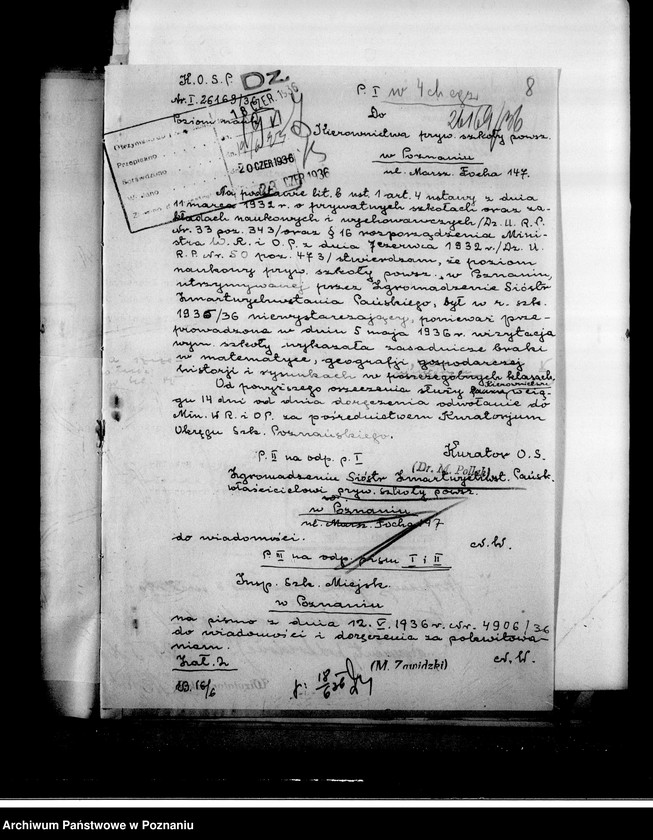 K.O.S.P.
DZ.
P. I w 4ch egz.
8
Nr. I. 26169/36
18 CZER. 1936
Do
26169/36
Poziom nauki
Kierownictwa pryw. szkoły powsz.
w Poznaniu
ul. Marsz. Focha 147.
Przepisano
Sprawdzono
Wysłano
20 CZER 1936
CZER 1936
Na podstawie lit. b ust. 1 art. 4 ustawy z dnia
11 marca 1932 r. o prywatnych szkołach oraz za-
kładach naukowych i wychowawczych /Dz. U. R. P.
Nr. 33 poz. 343/ oraz § 16 rozporządzenia Mini-
stra W. R. i O. P. z dnia 7 czerwca 1932 r. /Dz. U.
R. P. Nr. 50 poz. 473/ stwierdzam, że poziom
naukowy pryw. szkoły powsz. w Poznaniu,
utrzymywanej przez Zgromadzenie Sióstr
Zmartwychwstania Pańskiego, był w r. szk.
1935/36 niewystarczający, ponieważ prze-
prowadzona w dniu 5 maja 1936 r. wizytacja
wym. szkoły wykazała zasadnicze braki
w matematyce, geografji, gospodarczej
historji i rysunkach w poszczególnych klasach.
Od powyższego orzeczenia służy Kierownictwu w cią-
gu 14 dni od dnia doręczenia odwołanie do
Min. W R. i OP. za pośrednictwem Kuratorjum
Okręgu Szk. Poznańskiego.
P. II na odp. p. I
Kurator O. S.
(Dr. M. Pollak)
Zgromadzeniu Sióstr Zmartwychwst. Pańsk.
właścicielowi pryw. szkoły powsz.
w Poznaniu
ul. Marsz. Focha 147
do wiadomości.
P. III na odp. pism I i II
Insp. Szk. Miejsk.
w Poznaniu
na pismo z dnia 12. V. 1936 r. Nr. 4906/36
do wiadomości i doręczenia za pokwitowa-
niem.
Zał. 2
(M. Zawidzki)
16/6
18/6 36
Archiwum Państwowe w Poznaniu